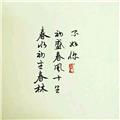 春水初生春林
初盛春风十里
不如你